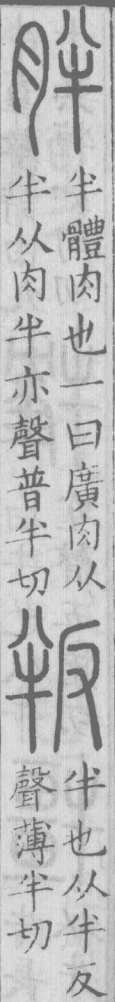 胖
半體肉也一曰廣肉从
半从肉半亦聲普半切
叛
半也从半反
聲薄半切